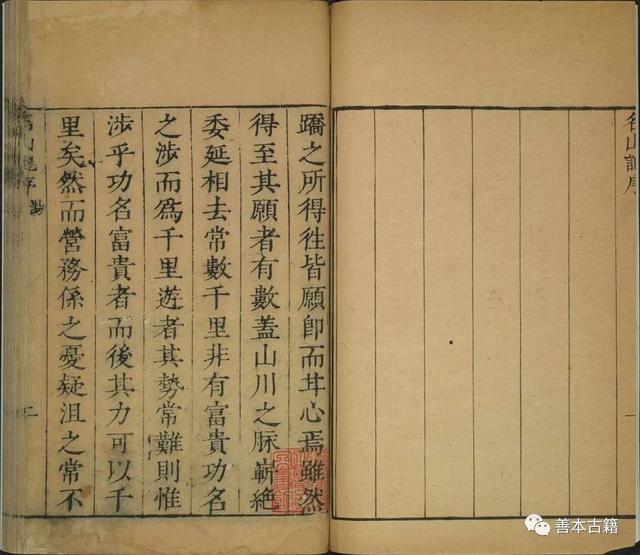 名山記序
一
蹻之所得徃皆願卽而幷心焉雖然
得至其願者有數蓋山川之脉嶄絶
委延相去常數千里非有富貴功名
之涉而爲千里遊者其勢常難則惟
涉乎功名富貴者而後其力可以千
里矣然而營務係之憂疑沮之常不
名山記序 湯
二
善本古籍